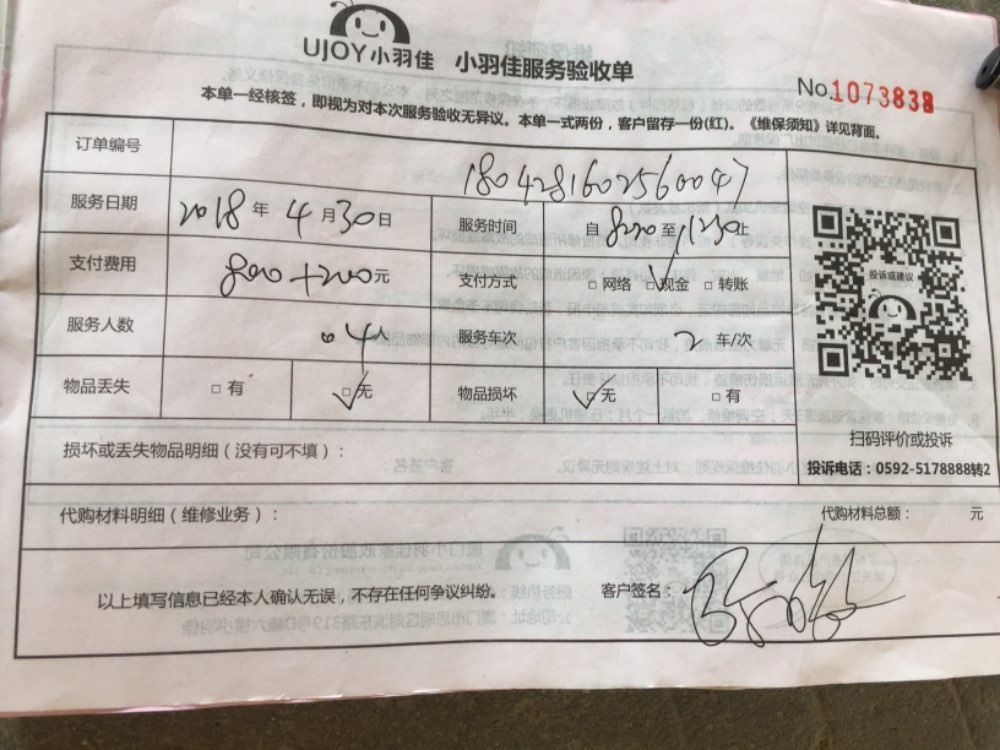 UJOY小羽佳 小羽佳服务验收单
No.1073838
本单一经核签，即视为对本次服务验收无异议。本单一式两份，客户留存一份(红)。《维保须知》详见背面。
订单编号 1804281602560047
服务日期 2018年4月30日 服务时间 自8:20至12:30止
支付费用 800+200元 支付方式 □网络 □现金 □转账
服务人数 4 服务车次 2车/次
物品丢失 □有 □无 物品损坏 □无 □有
投诉或建议
扫码评价或投诉
投诉电话：0592-5178888转2
损坏或丢失物品明细（没有可不填）：
代购材料明细（维修业务）： 代购材料总额： 元
以上填写信息已经本人确认无误，不存在任何争议纠纷。 客户签名：